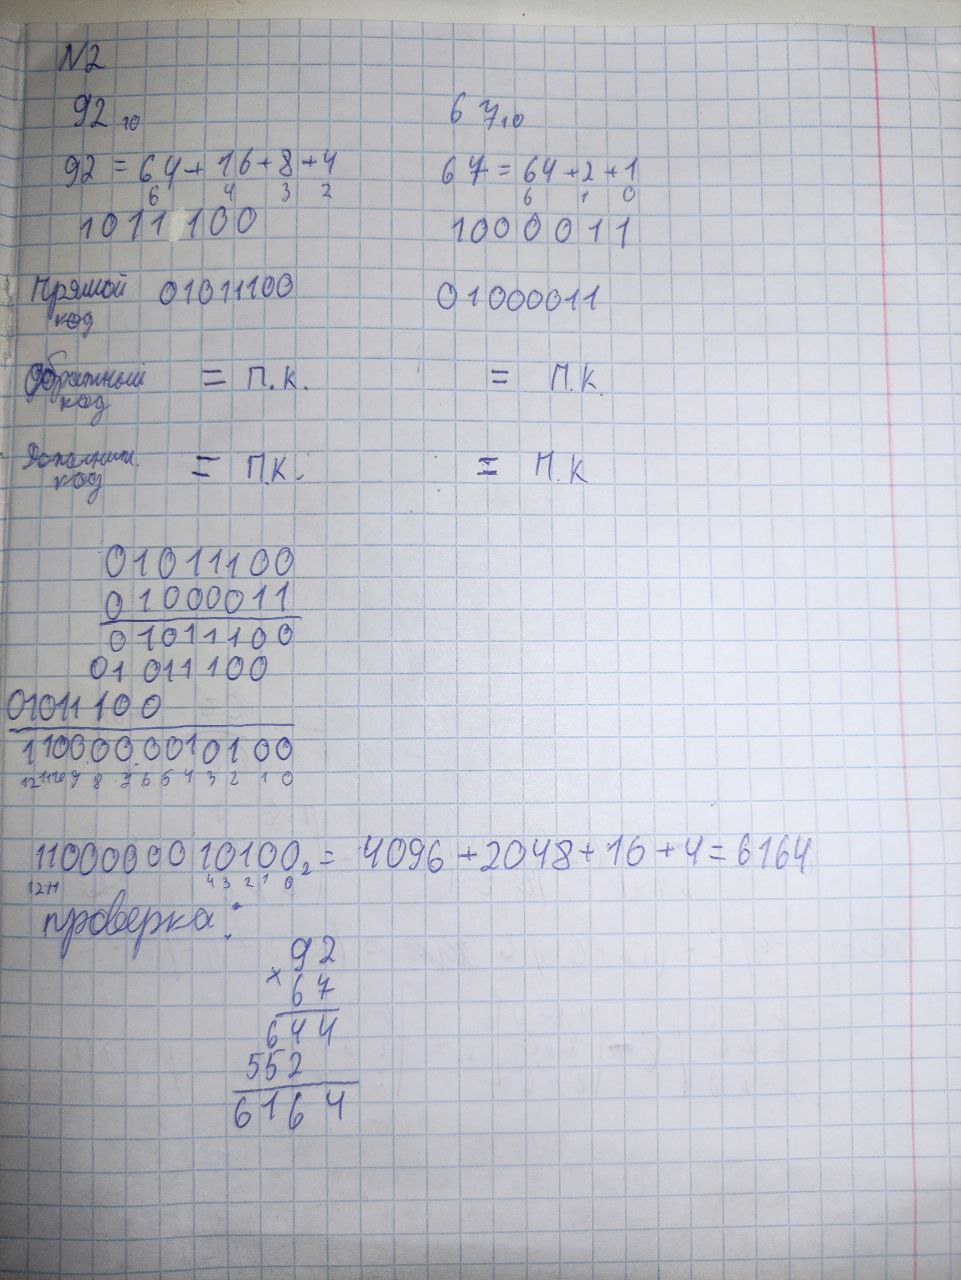 N2
92₁₀ 67₁₀
92 = 64 + 16 + 8 + 4 67 = 64 + 2 + 1
6 4 3 2 6 1 0
1011 100 1000011
Прямой код 01011100 01000011
Обратный код = П.К. = П.К.
Дополнит. код = П.К. = П.К
01011100
01000011
01011100
01011100
01011100
1100000010100
12 11 10 9 8 7 6 5 4 3 2 1 0
1100000010100₂ = 4096 + 2048 + 16 + 4 = 6164
12 11 4 3 2 1 0
проверка:
92
× 67
644
552
6164